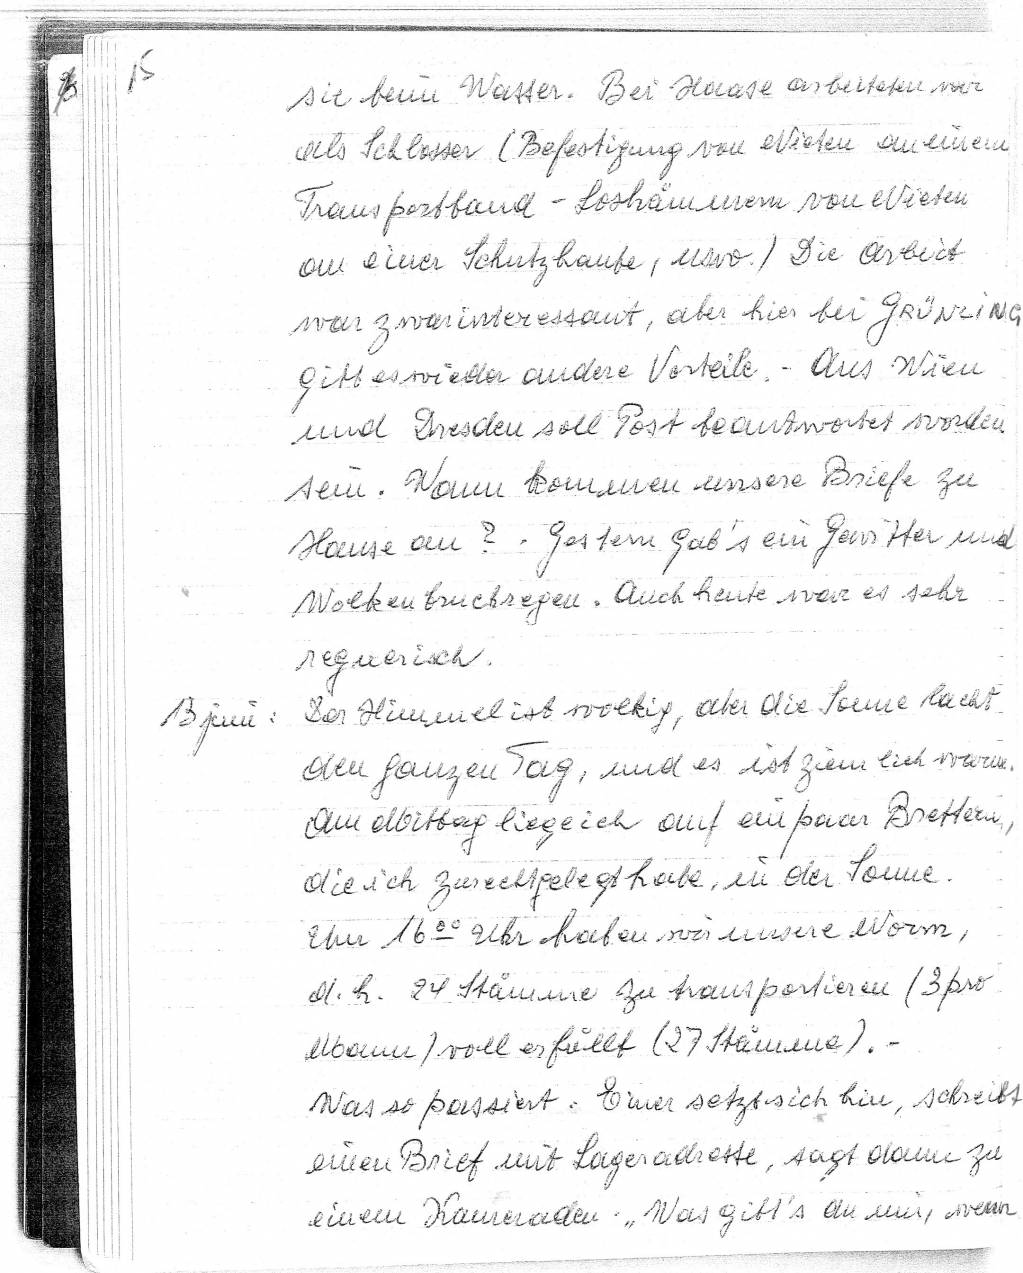 15
sie beim Wasser. Bei Haase arbeiteten wir
als Schlosser (Befestigung von Nieten an einem
Transportband - Loshämmern von Nieten
an einer Schutzhaube, usw.) Die Arbeit
war zwar interessant, aber hier bei GRÜNLING
gibt es wieder andere Vorteile. - Aus Wien
und Dresden soll Post beantwortet worden
sein. Wann kommen unsere Briefe zu
Hause an? - Gestern gab's ein Gewitter und
Wolkenbruchregen. Auch heute war es sehr
regnerisch.
13 juni: Der Himmel ist wolkig, aber die Sonne lacht
den ganzen Tag, und es ist ziemlich warm.
Am Mittag liege ich auf ein paar Brettern,
die ich zurechtgelegt habe, in der Sonne.
Um 16°° Uhr haben wir unsere Norm,
d.h. 24 Stämme zu transportieren (3 pro
Mann) voll erfüllt (27 Stämme). -
Was so passiert: Einer setzt sich hin, schreibt
einen Brief mit Lageradresse, sagt dann zu
einem Kameraden: „Was gibt's du mir, wenn